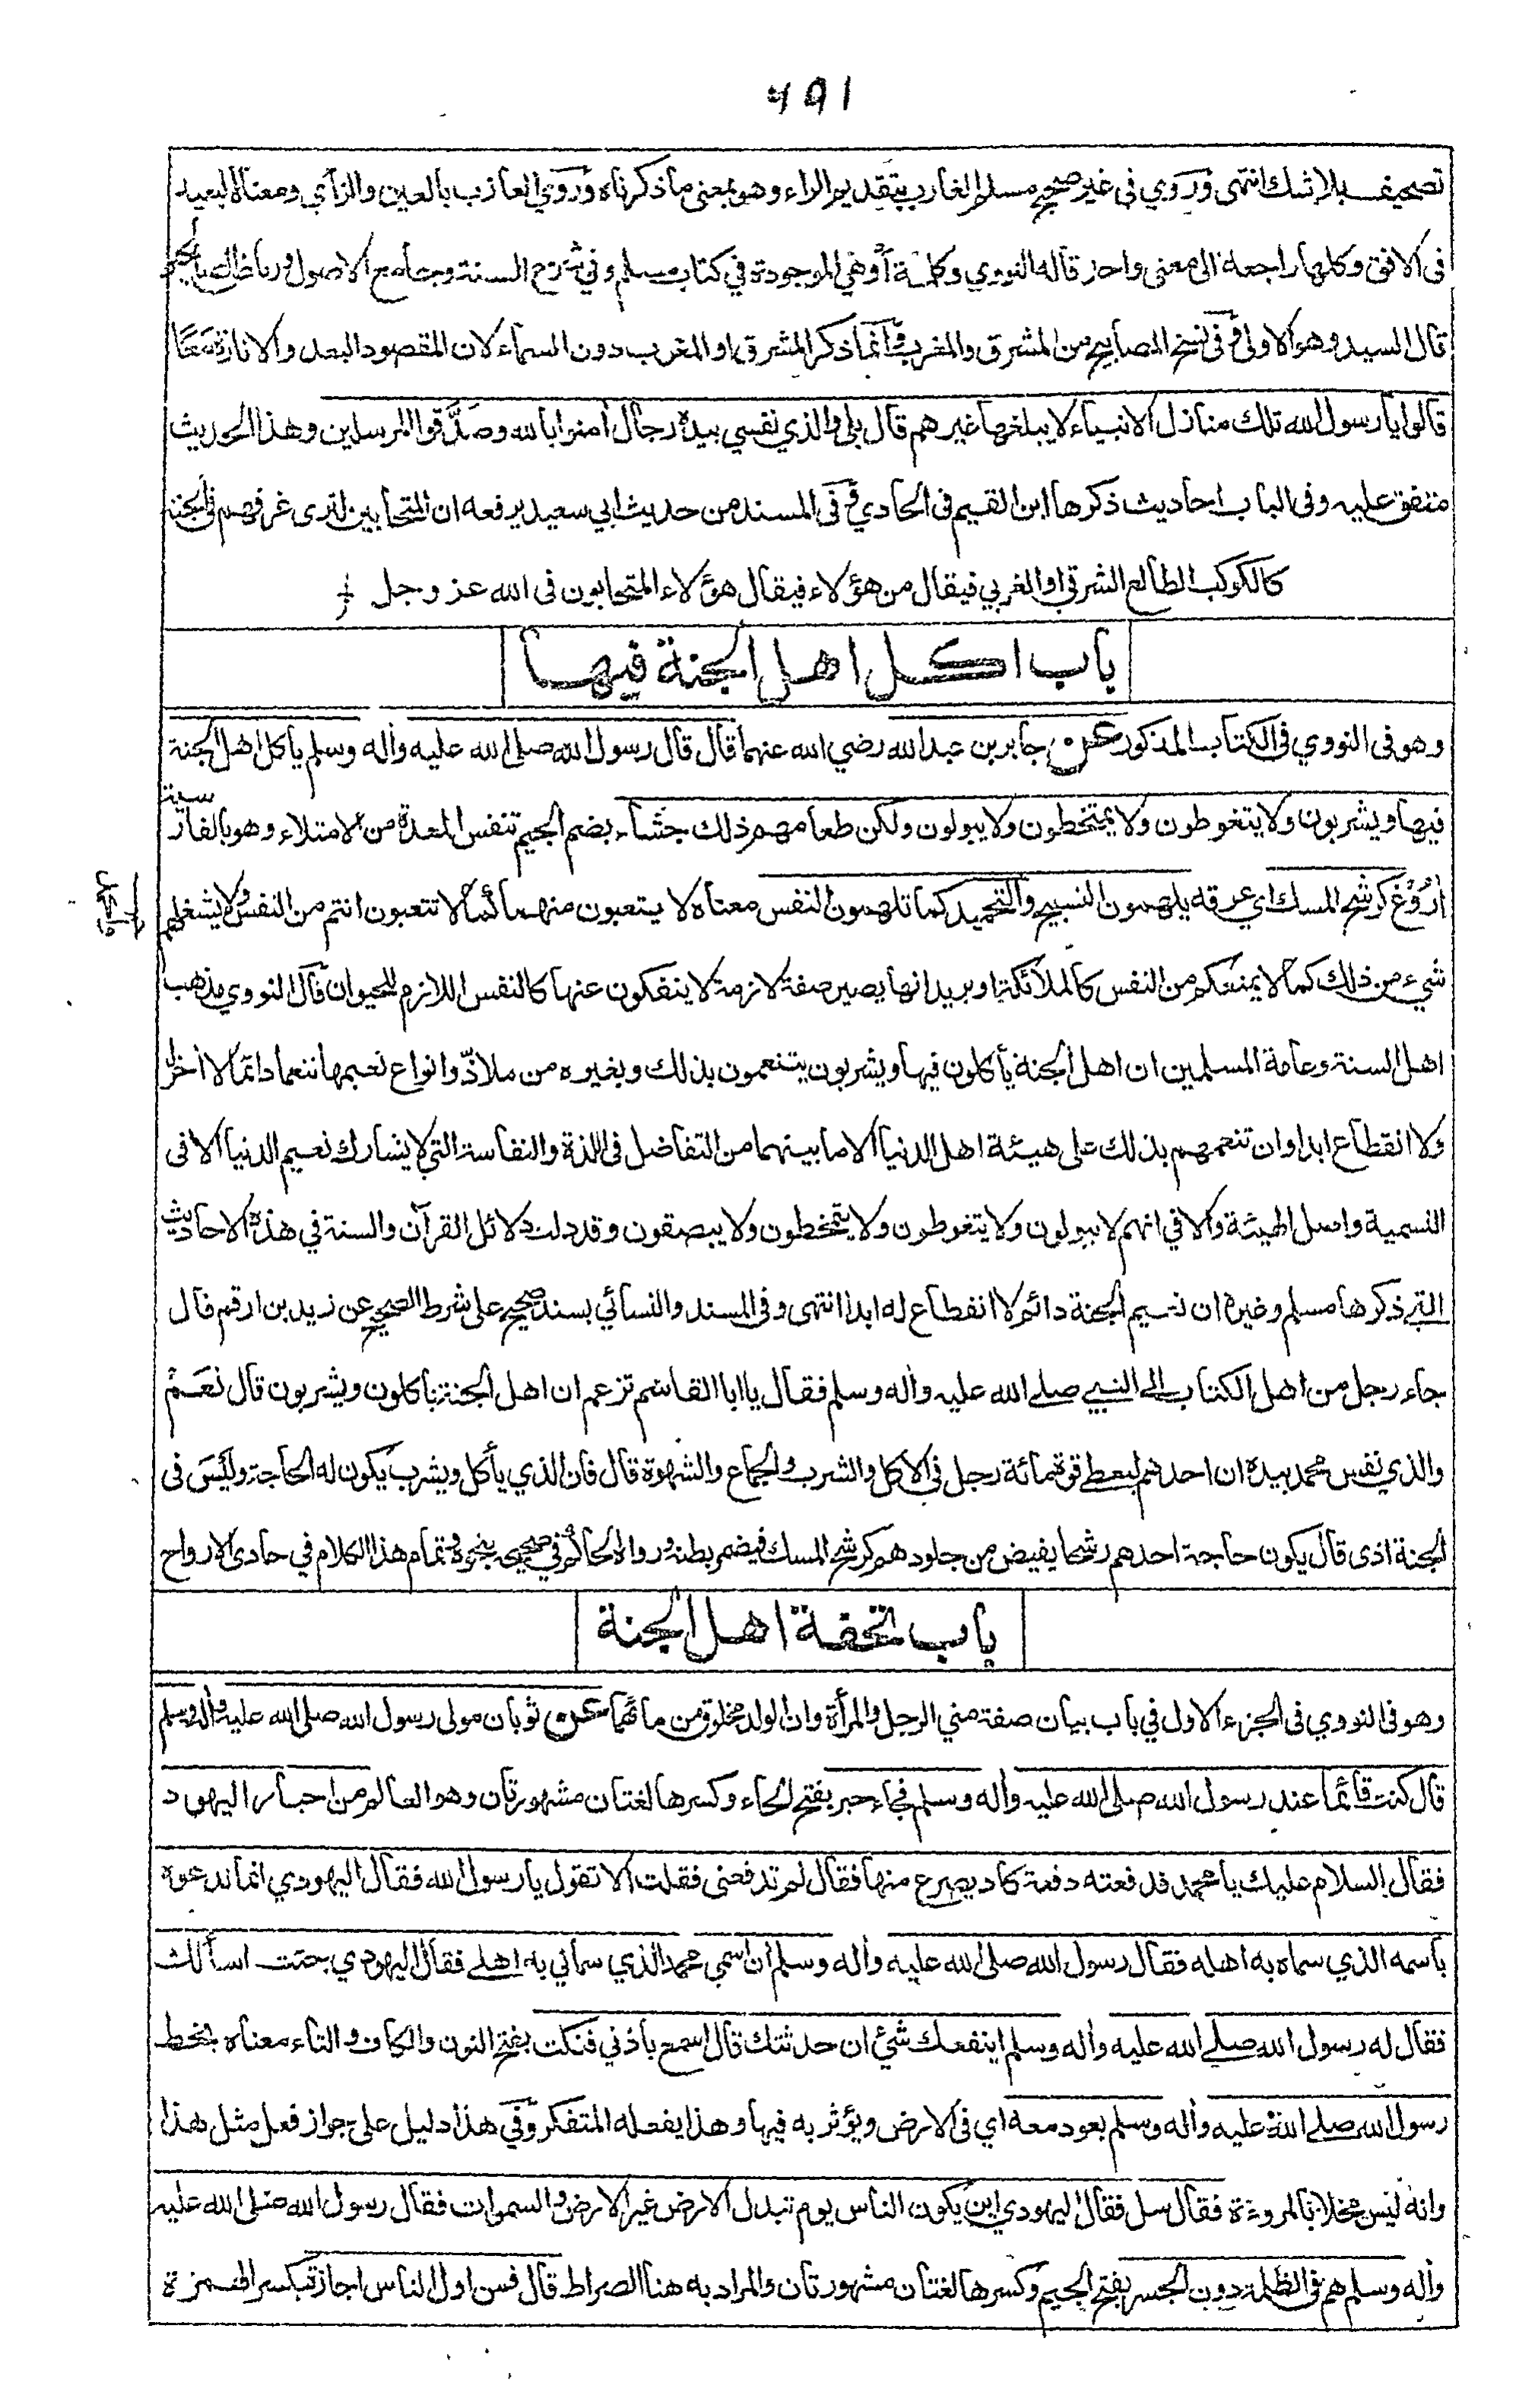 ۶۹۱
تصحيف بلا شك انتهى وروي في غير صحيح مسلم الغارب بتقديم الراء وهو بمعنى ما ذكرناه وروي العازب بالعين والزاي ومعناه البعيد
في الافق وكلها راجعة الى معنى واحد قاله النووي وكلمة أو هي الموجودة في كتاب مسلم وفي شرح السنة وجامع الاصول ورياض الصالحين
قال السيد وهو الاولى وفي نسخ المصابيح من المشرق والمغرب وانما ذكر المشرق او المغرب دون السماء لان المقصود البعد والانارة معًا
قالوا يا رسول الله تلك منازل الانبياء لا يبلغها غيرهم قال بلى والذي نفسي بيده رجال امنوا بالله وصدَّقوا المرسلين وهذا الحديث
متفق عليه وفي الباب احاديث ذكرها ابن القيم في الحادي وفي المسند من حديث ابي سعيد يرفعه ان المتحابين لترى غرفهم في الجنة
كالكوكب الطالع الشرقي او الغربي فيقال من هؤلاء فيقال هؤلاء المتحابون في الله عز وجل
باب اكل اهل الجنة فيها
وهو في النووي في الكتاب المذكور عن جابر بن عبد الله رضي الله عنهما قال قال رسول الله صلى الله عليه واله وسلم يأكل اهل الجنة
فيها ويشربون ولا يتغوطون ولا يمتخطون ولا يبولون ولكن طعامهم ذلك جشاء بضم الجيم تنفس المعدة من الامتلاء وهو بالفارسية
أروغ كرشح المسك اي عرقه يلهمون التسبيح والتحميد كما تلهمون النفس معناه لا يتعبون منهما كما لا تتعبون انتم من النفس ولا يشغلهم
شيء من ذلك كما لا يمنعكم من النفس كالملائكة او يريد انها يصير صفة لازمة لا ينفكون عنها كالنفس اللازم للحيوان قال النووي مذهب
اهل السنة وعامة المسلمين ان اهل الجنة يأكلون فيها ويشربون يتنعمون بذلك وبغيره من ملاذّ وانواع نعيمها تنعما دائما لا أخر له
ولا انقطاع ابدا وان تنعمهم بذلك على هيئة اهل الدنيا الا ما بينهما من التفاضل في اللذة والنفاسة التي لا يشارك نعيم الدنيا الا في
التسمية واصل الهيئة والا في انهم لا يبولون ولا يتغوطون ولا يتمخطون ولا يبصقون وقد دلت دلائل القرآن والسنة في هذه الاحاديث
التي ذكرها مسلم وغيره ان نعيم الجنة دائم لا انقطاع له ابدا انتهى وفي المسند والنسائي بسند صحيح على شرط الصحيح عن زيد بن ارقم قال
جاء رجل من اهل الكتاب الى النبي صلى الله عليه واله وسلم فقال يا ابا القاسم تزعم ان اهل الجنة يأكلون ويشربون قال نعم
والذي نفس محمد بيده ان احدهم ليعطى قوة مائة رجل في الاكل والشرب والجماع والشهوة قال فان الذي يأكل ويشرب يكون له الحاجة وليس في
الجنة اذى قال يكون حاجة احدهم رشحا يفيض من جلودهم كرشح المسك فيضمر بطنه ورواه الحاكم في صحيحه بنحوه وتمام هذا الكلام في حادى الارواح
باب تحفة اهل الجنة
وهو في النووي في الجزء الاول في باب بيان صفة مني الرجل والمرأة وان الولد مخلوق من مائهما عن ثوبان مولى رسول الله صلى الله عليه واله وسلم
قال كنت قائما عند رسول الله صلى الله عليه واله وسلم فجاء حبر بفتح الحاء وكسرها لغتان مشهورتان وهو العالم من احبار اليهود
فقال السلام عليك يا محمد فدفعته دفعة كاد يصرع منها فقال لم تدفعني فقلت الا تقول يا رسول الله فقال اليهودي انما ندعوه
باسمه الذي سماه به اهله فقال رسول الله صلى الله عليه واله وسلم ان اسمي محمد الذي سماني به اهلي فقال اليهودي جئت اسألك
فقال له رسول الله صلى الله عليه واله وسلم اينفعك شئ ان حدثتك قال اسمع باذني فنكت بفتح النون والكاف والتاء معناه يخط
رسول الله صلى الله عليه واله وسلم بعود معه اي في الارض ويؤثر به فيها وهذا يفعله المتفكر وفي هذا دليل على جواز فعل مثل هذا
وانه ليس مخلا بالمروءة فقال سل فقال اليهودي اين يكون الناس يوم تبدل الارض غير الارض والسموات فقال رسول الله صلى الله عليه
واله وسلم هم في الظلمة دون الجسر بفتح الجيم وكسرها لغتان مشهورتان والمراد به هنا الصراط قال فمن اول الناس اجازة بكسر الهمزة